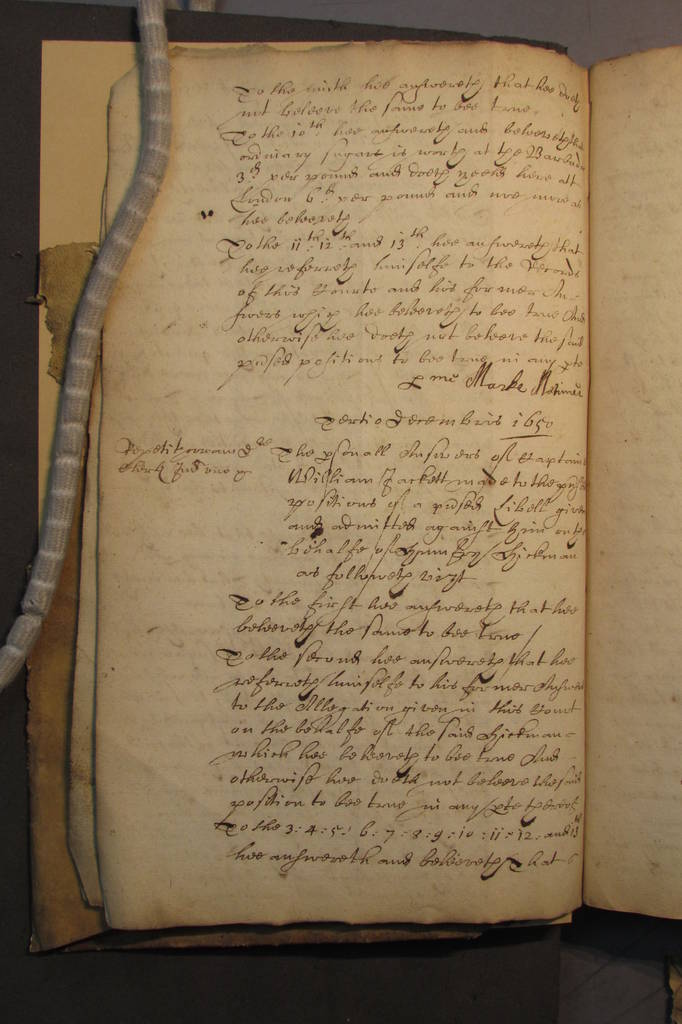 To the ninth hee answereth that hee doth
not beleeve the same to bee true.
To the 10th hee answereth and beleeveth that
ordinary sugars is worth at the Barbados
3d per pound and doeth yeeld here at
London 6d per pound and noe more as
hee beleeveth
To the 11th 12th and 13th hee answereth that
hee referreth himselfe to the Records
of this Courte and his former An-
swers which hee beleeveth to bee true And
otherwise hee doeth not beleeve the said
pnsed positions to bee true in any pte
p me Marke
Tertio Decembris 1650
Repetit coram
Clerk
The psonall Answers of Captaine
William Jackett made to the
positions of a pnsed Libell given
and admitted against him on the
behalfe of Humfry Hickman
as followeth vizt
To the first hee answereth that hee
beleeveth the same to bee true /
To the second hee answereth that hee
referreth himselfe to his former Answer
to the Allegation given in this Court
on the behalfe of the said Hickman
which hee beleeveth to bee true And
otherwise hee doeth not beleeve the said
position to bee true in any pte thereof
To the 3: 4: 5: 6: 7: 8: 9: 10: 11: 12: and 13th
hee answereth and beleeveth that